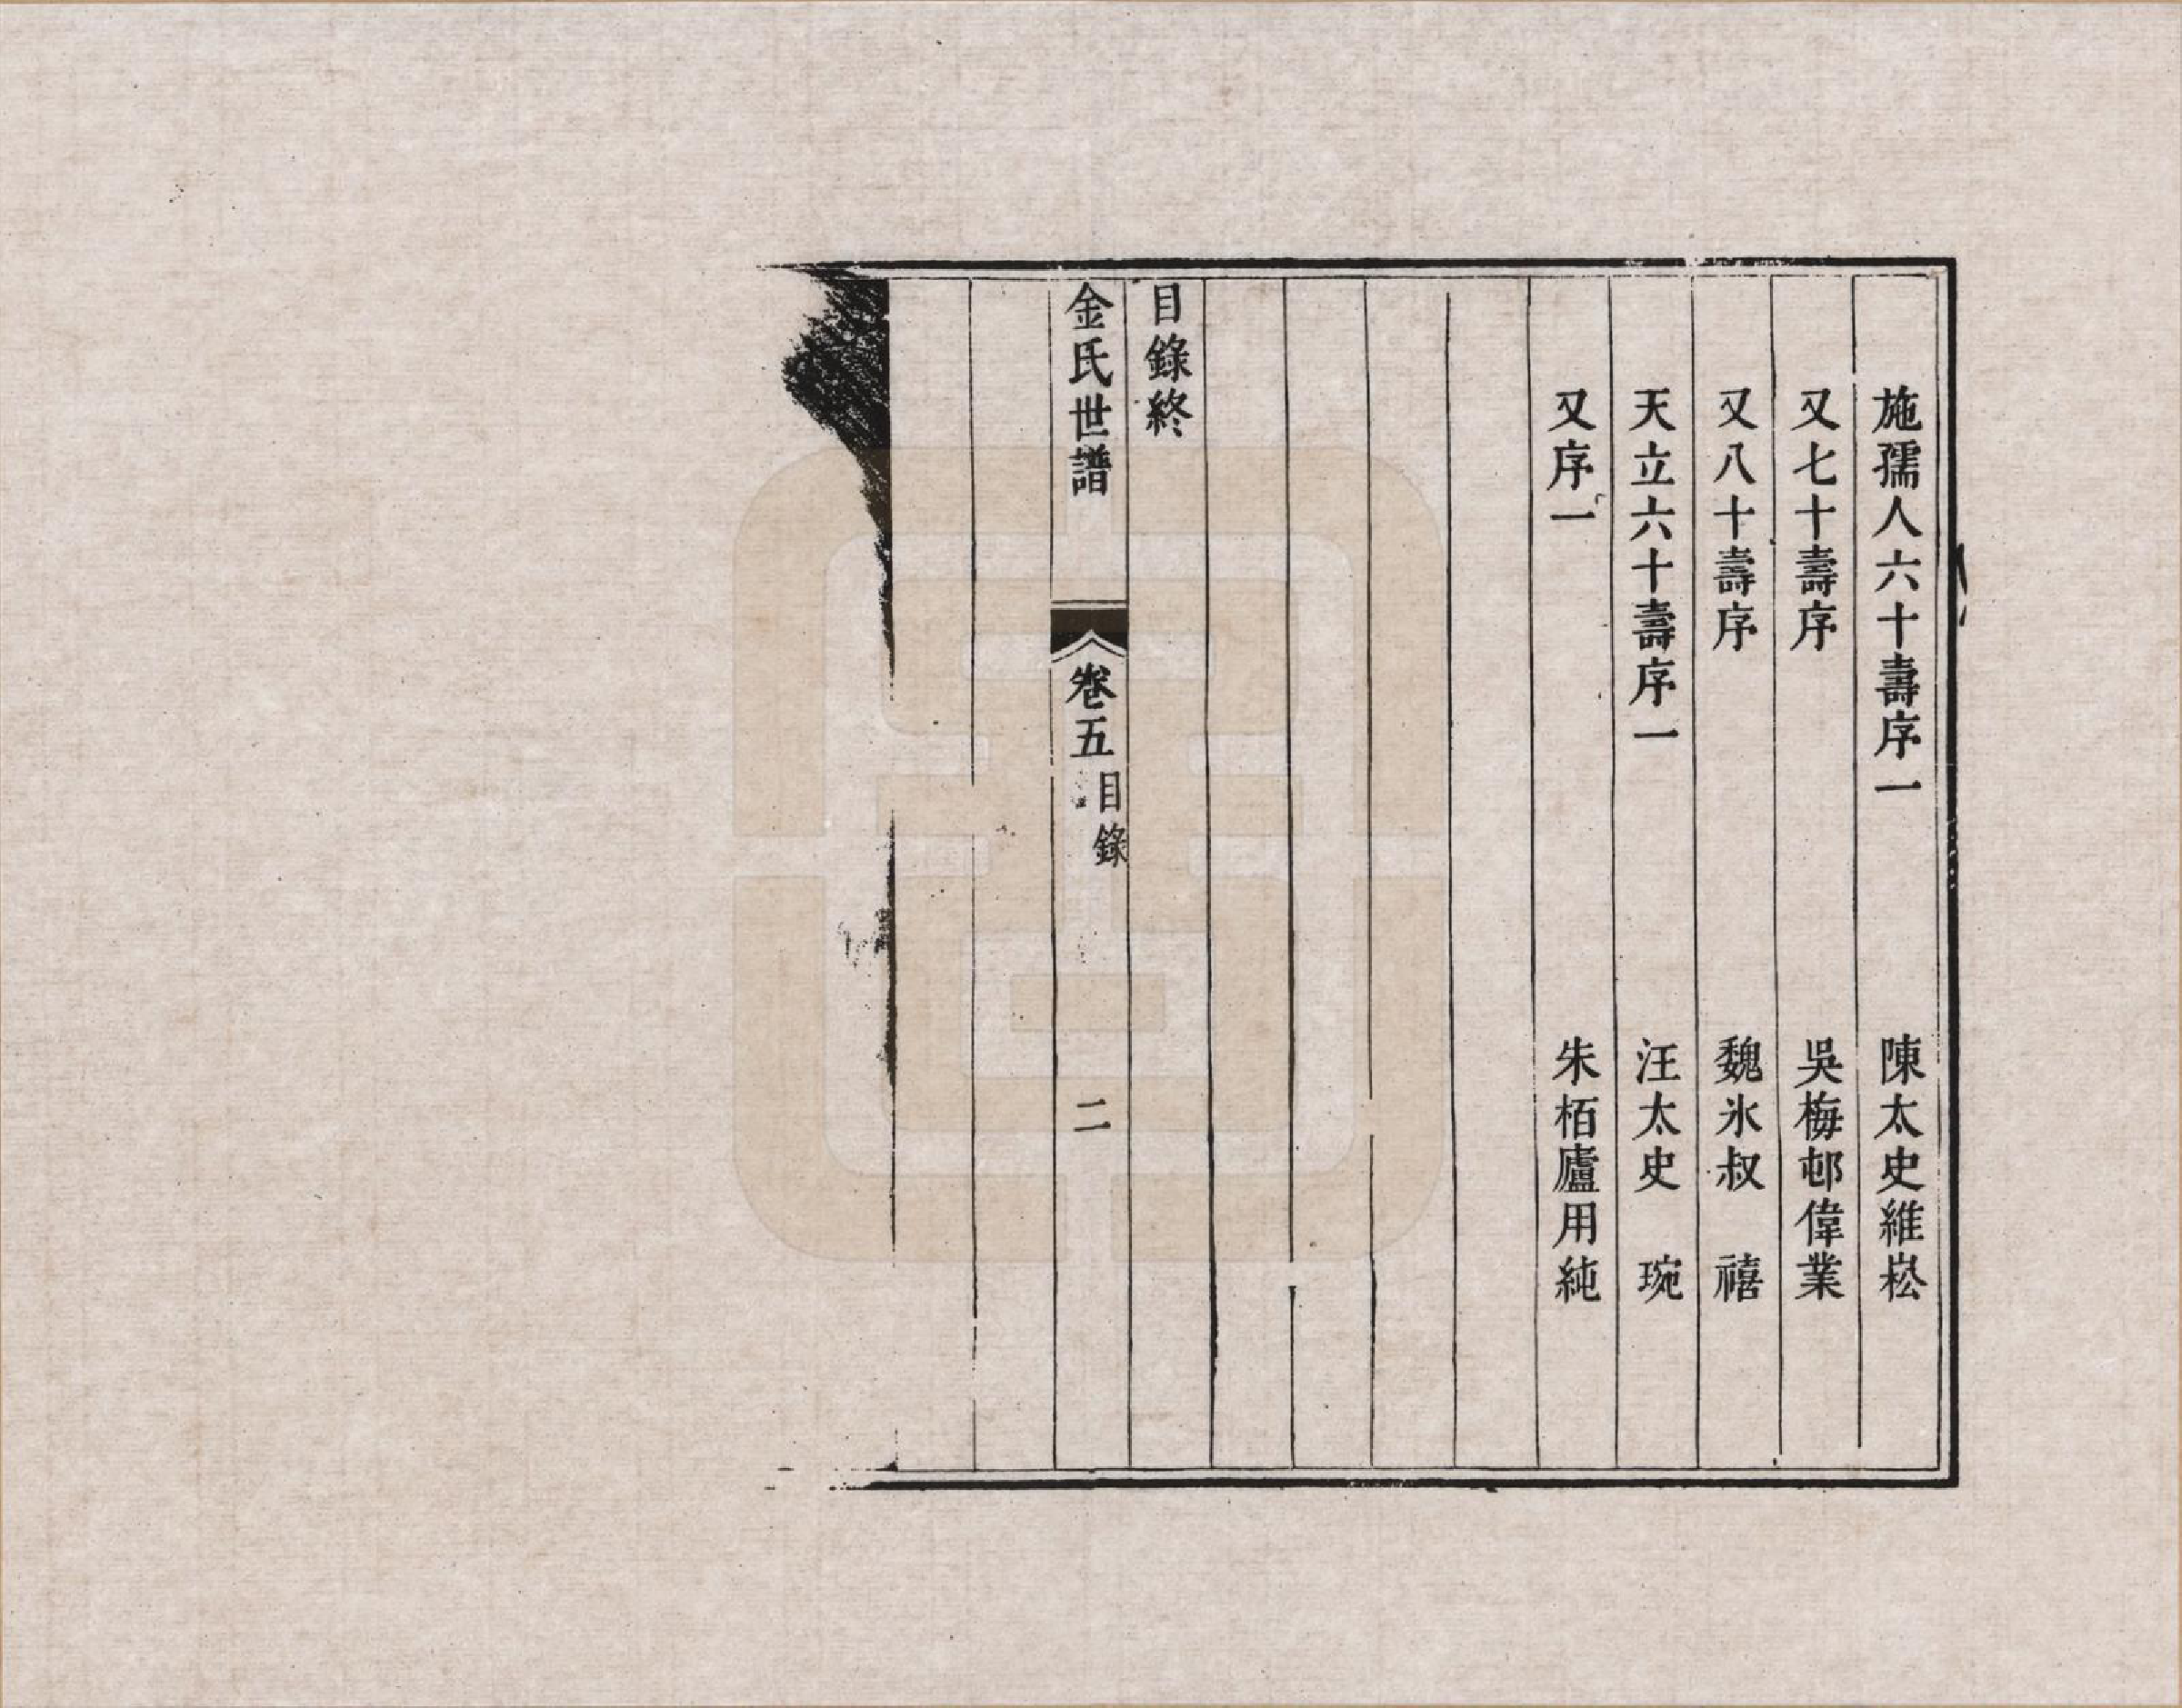 施孺人六十壽序一　陳太史維崧
又七十壽序　吳梅邨偉業
又八十壽序　魏氷叔　禧
天立六十壽序一　汪太史　琬
又序一　朱栢廬用純
目錄終
金氏世譜　卷五　目錄　二